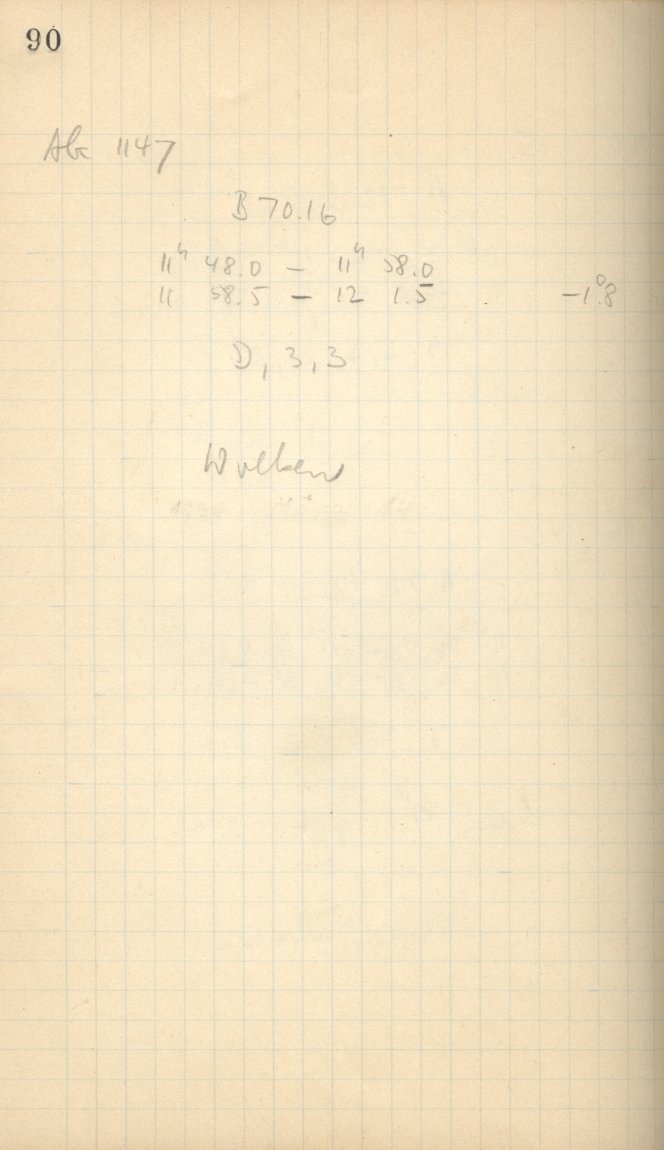 90
Abc 1147
B 70.16
11ʰ 48.0 — 11ʰ 58.0
11 58.5 — 12 1.5 −1°.8
D, 3, 3
Wolken